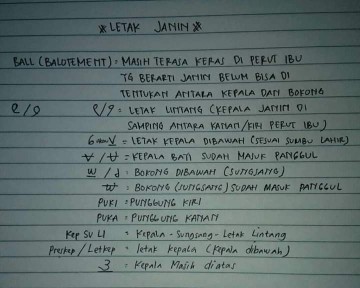 * LETAK JANIN *
BALL (BALOTEMENT) = MASIH TERASA KERAS DI PERUT IBU
YG BERARTI JANIN BELUM BISA DI
TENTUKAN ANTARA KEPALA DAN BOKONG
= LETAK LINTANG (KEPALA JANIN DI
SAMPING ANTARA KANAN/KIRI PERUT IBU)
= LETAK KEPALA DIBAWAH (SESUAI SUMBU LAHIR)
= KEPALA BAYI SUDAH MASUK PANGGUL
= BOKONG DIBAWAH (SUNGSANG)
= BOKONG (SUNGSANG) SUDAH MASUK PANGGUL
PUKI = PUNGGUNG KIRI
PUKA = PUNGGUNG KANAN
Kep SU LI = Kepala - Sungsang - Letak Lintang
Preskep / Letkep = letak kepala (kepala dibawah)
= Kepala Masih diatas